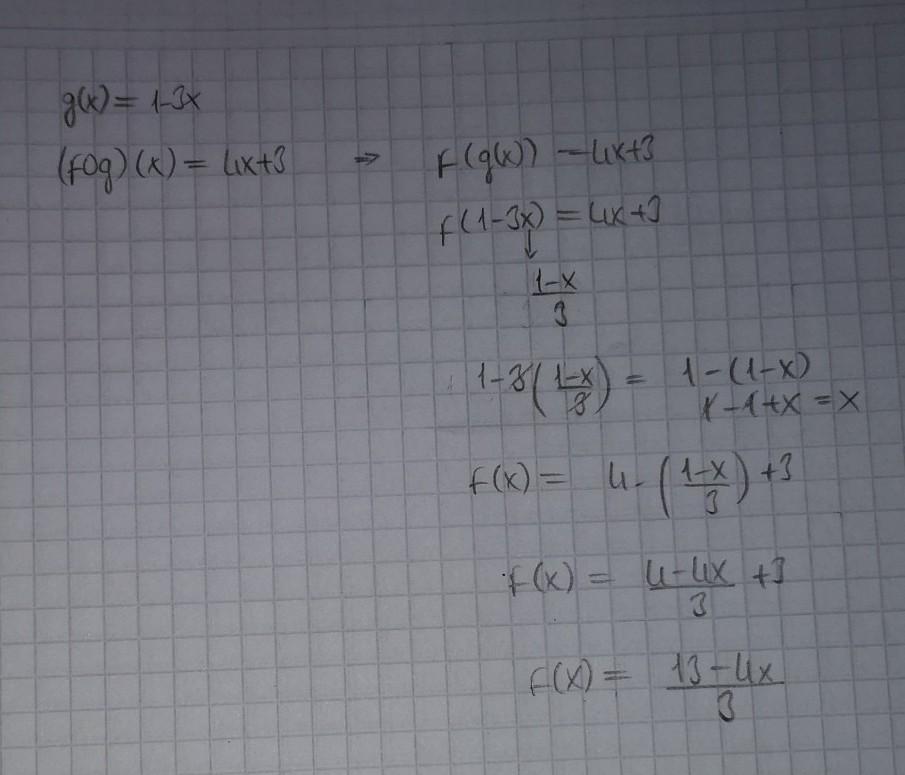 g(x) = 1-3x
(fog)(x) = 4x+3 ⇒ f(g(x)) = 4x+3
f(1-3x) = 4x+3
↓
1-x
3
1-3(1-x/3) = 1-(1-x)
1-1+x = x
f(x) = 4·(1-x/3)+3
f(x) = 4-4x/3 +3
f(x) = 13-4x/3